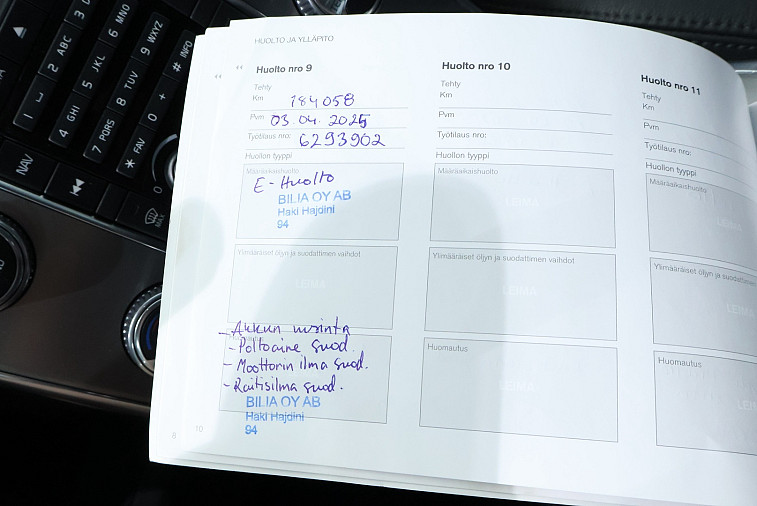 HUOLTO JA YLLÄPITO
Huolto nro 9
Tehty
Km 184058
Pvm 03.04.2025
Työtilaus nro: 6293902
Huollon tyyppi
Määräaikaishuolto
E-Huolto
BILIA OY AB
Haki Hajdini
94
Ylimääraiset öljyn ja suodattimen vaihdot
LEIMA
- Akkun uusinta
- Poltoaine suod.
- Moottorin ilma suod.
- Raitisilma suod.
BILIA OY AB
Haki Hajdini
94
Huolto nro 10
Tehty
Km
Pvm
Työtilaus nro:
Huollon tyyppi
Määräaikaishuolto
LEIMA
Ylimääräiset öljyn ja suodattimen vaihdot
LEIMA
Huomautus
LEIMA
Huolto nro 11
Tehty
Km
Pvm
Työtilaus nro:
Huollon tyyppi
Määräaikaishuolto
LEIMA
Ylimääräiset öljyn ja su
LEIMA
Huomautus
LEIMA
8
10
2 ABC
3 D
6 MNO
9 WXYZ
# INFO
5 JKL
8 TUV
0 +
1
4 GHI
7 PQRS
* FAV
NAV
MAX